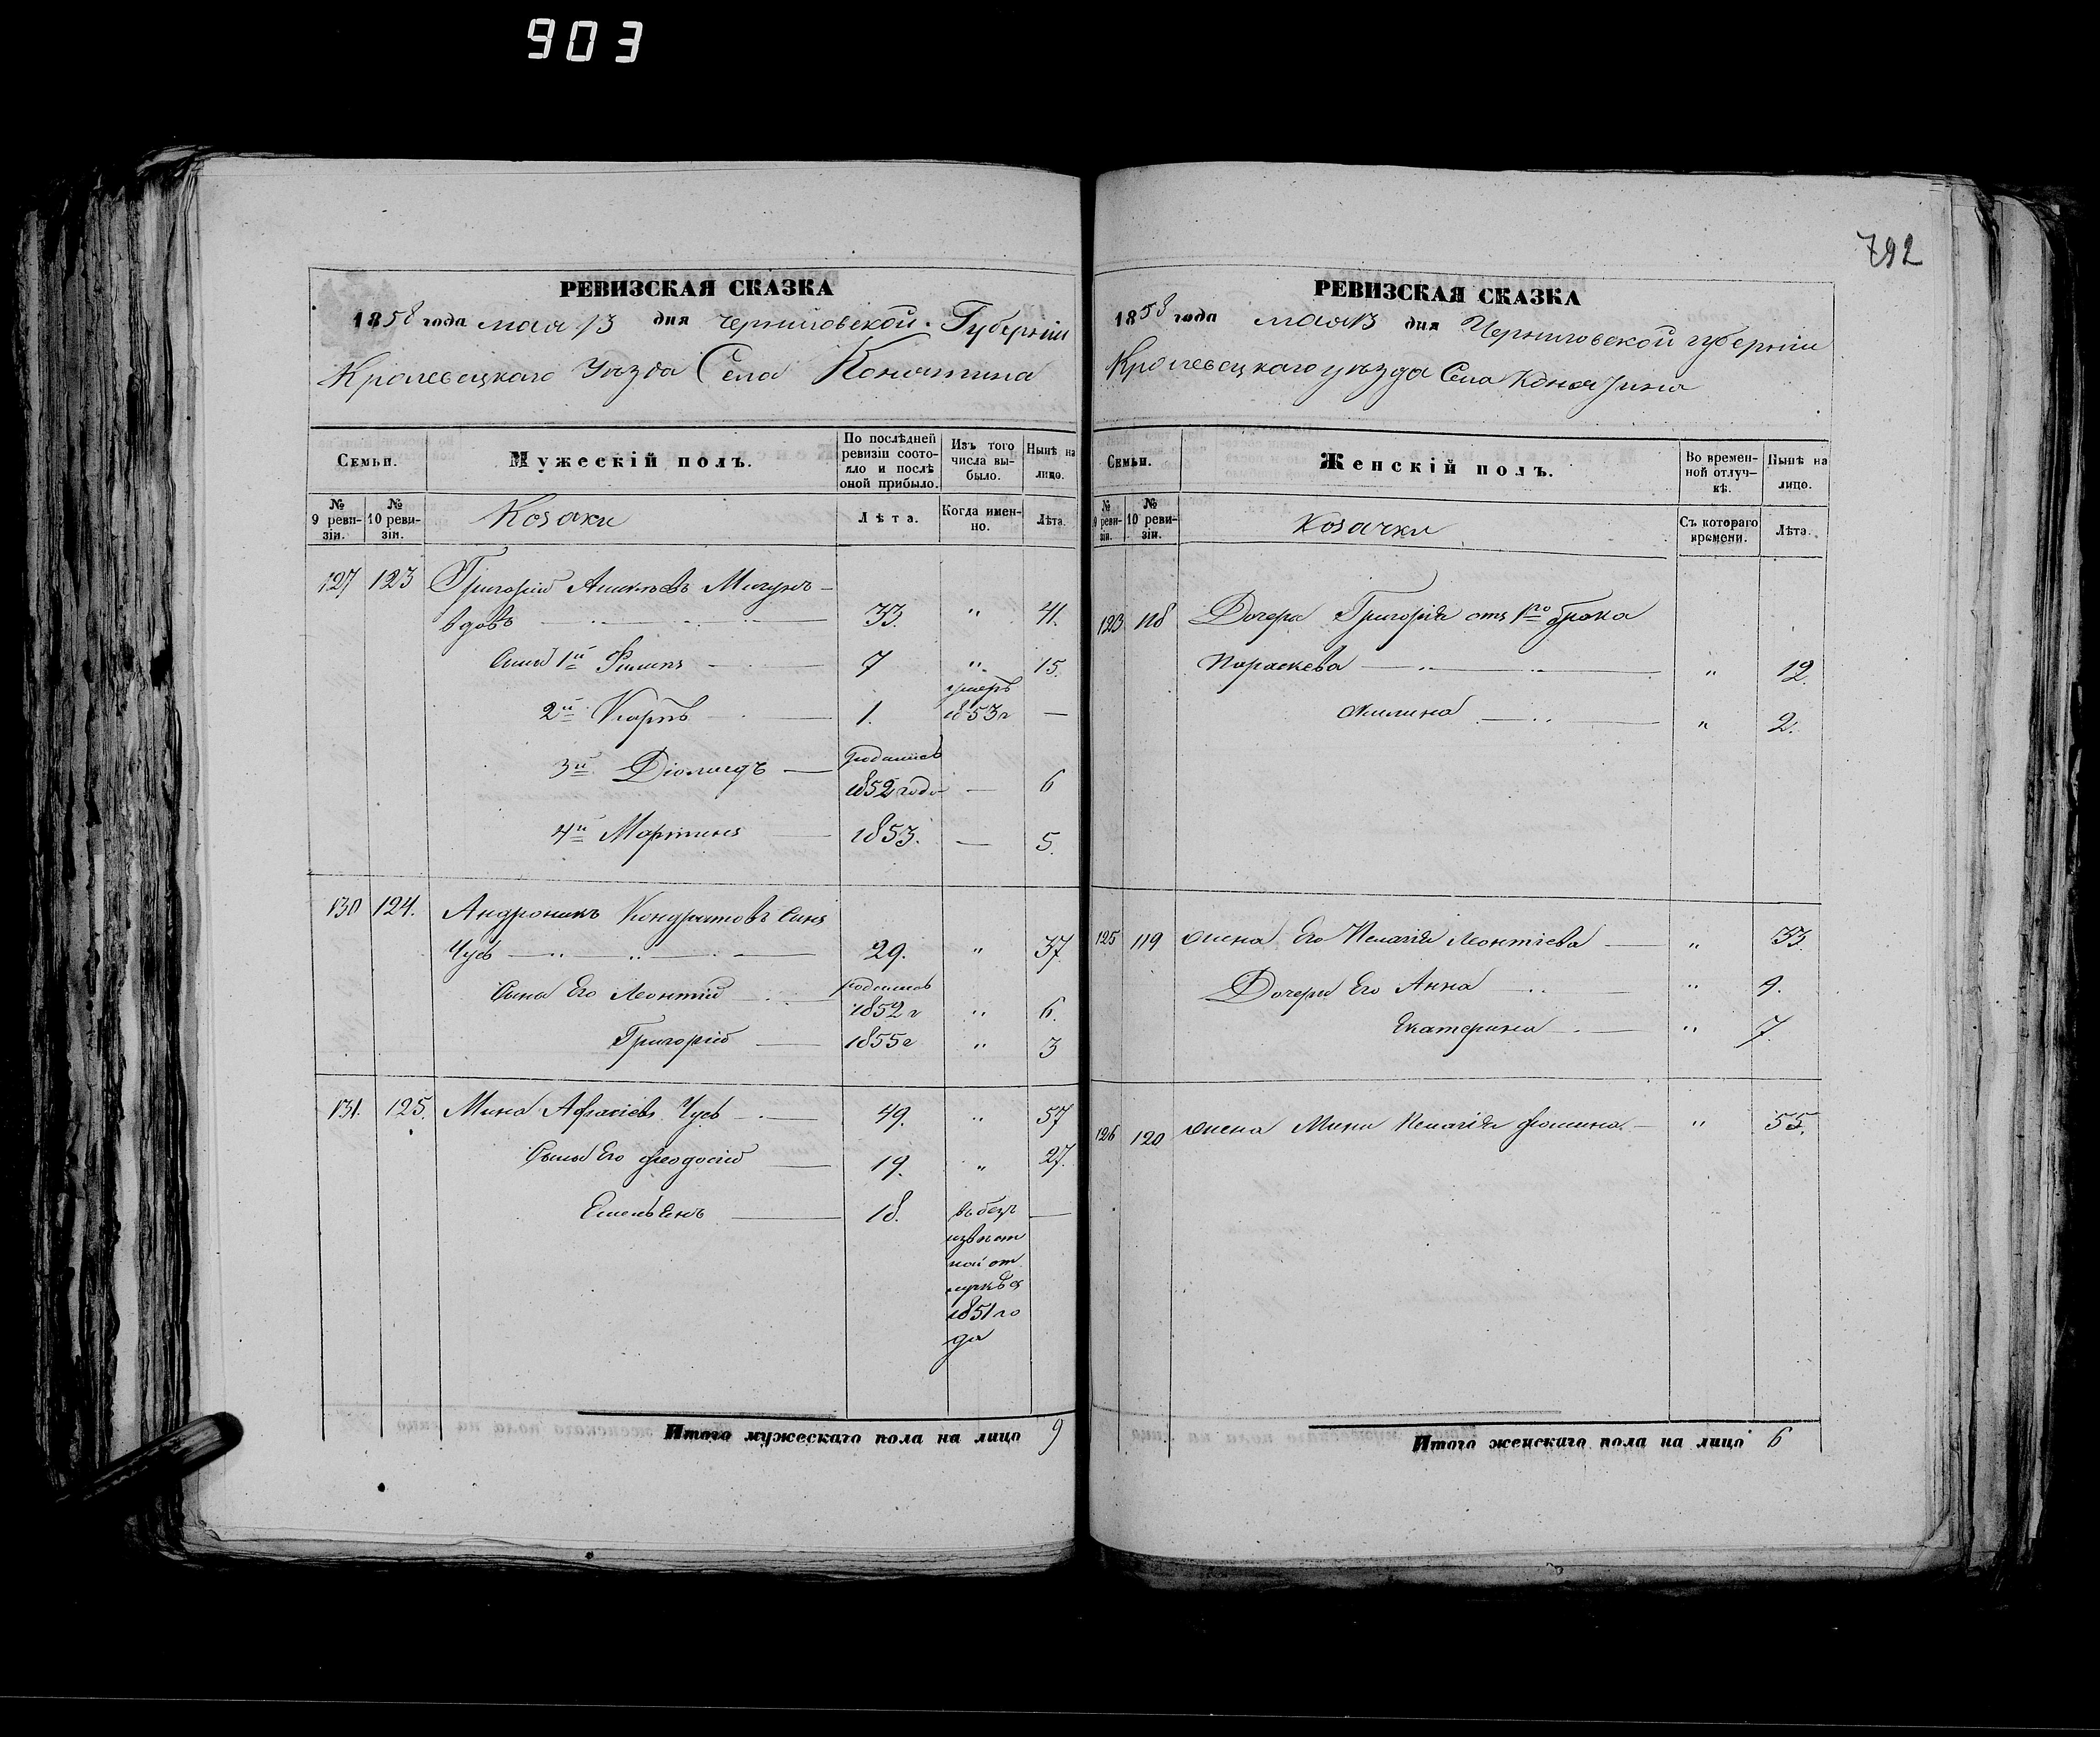 903
792
РЕВИЗСКАЯ СКАЗКА
1858 года мая 13 дня Черниговской Губерніи
Кролевецкаго Уѣзда Села Конятина
Семьи.
Мужескій полъ.
По послѣдней ревизіи состояло и послѣ оной прибыло.
Изъ того числа выбыло.
Нынѣ на лицо.
№ 9 ревизіи.
№ 10 ревизіи.
Козаки
Лѣта.
Когда именно.
Лѣта.
127 123 Григорій
вдовъ 33. " 41.
Сыны 1й Филипъ 7 " 15.
2й Карпъ 1. умеръ 1853 г —
3й Діомидъ — родился 1852 года — 6
4й Мартинъ 1853. — 5.
130 124. Андроникъ Кондратовъ Сынъ
Чусь 29. " 37
Сыны Его Леонтій родился 1852 г " 6.
Григорій 1855 г " 3
131. 125. Мина Чусь 49. " 57
Сыны Его Феодосій 19. " 27.
Емельянъ 18. въ безъ —
извѣст
ной от
лучкѣ съ
1851 го
да
Итого мужескаго пола на лицо 9
РЕВИЗСКАЯ СКАЗКА
1858 года мая 13 дня Черниговской губерніи
Кролевецкаго уѣзда Села Конятина
Семьи.
Женскій полъ.
Во временной отлучкѣ.
Нынѣ на лицо.
№ 9 ревизіи.
№ 10 ревизіи.
Козачки
Съ котораго времени.
Лѣта.
123 118 Дочери Григорія отъ 1го брака
Параскева " 12.
Акилина " 2.
125 119 Жена Его Пелагія Леонтіева " 33.
Дочери Его Анна "
Екатерина " 7.
126 120 Жена Мины Пелагія Фомина " 55.
Итого женскаго пола на лицо 6